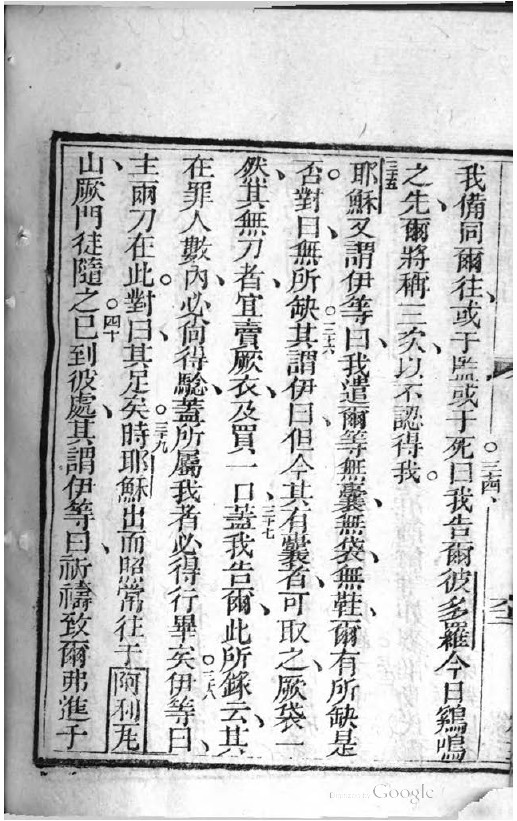 我備同爾往或于監或于死曰我告爾彼多羅今日鷄鳴
三四
之先爾將稱三次以不認得我
三五
耶穌又謂伊等曰我遣爾等無囊無袋無鞋爾有所缺是
否對曰無所缺其謂伊曰但今其有囊者可取之厥袋一
三六
然其無刀者宜賣厥衣及買一口蓋我告爾此所錄云其
三十七
在罪人數內必尙得騐蓋所屬我者必得行畢矣伊等曰
三八
主兩刀在此對曰其足矣時耶穌出而照常往于阿利瓦
三十九
山厥門徒隨之已到彼處其謂伊等曰祈禱致爾弗進于
四十
Digitized by Google